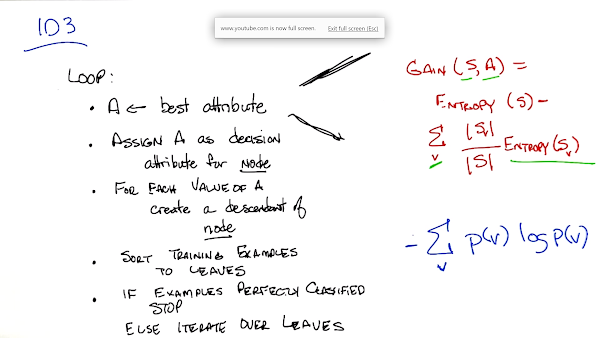 ID3
www.youtube.com is now full screen. Exit full screen (Esc)
LOOP:
• A ← best attribute
• ASSIGN A AS decision
attribute for NODE
• FOR EACH VALUE OF A
create a descendant of
node
• SORT TRAINING EXAMPLES
TO LEAVES
• IF EXAMPLES PERFECTLY CLASSIFIED
STOP
ELSE ITERATE OVER LEAVES
GAIN (S, A) =
ENTROPY (S) -
∑_v |S_v| / |S| ENTROPY(S_v)
- ∑_v p(v) log p(v)